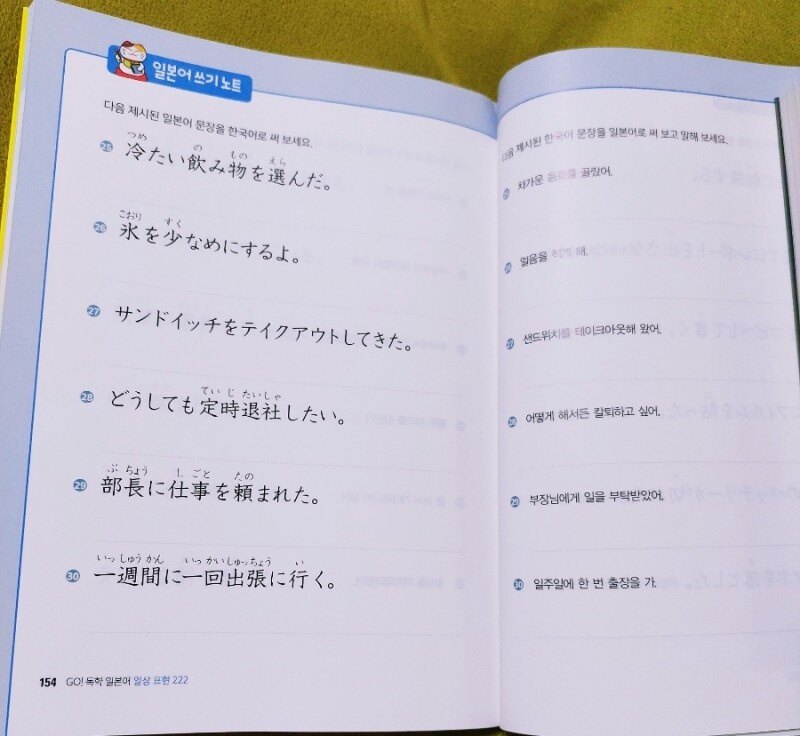 일본어 쓰기 노트
다음 제시된 일본어 문장을 한국어로 써 보세요.
つめ の もの えら
25 冷たい飲み物を選んだ。
こおり すく
26 氷を少なめにするよ。
27 サンドイッチをテイクアウトしてきた。
ていじたいしゃ
28 どうしても定時退社したい。
ぶちょう しごと たの
29 部長に仕事を頼まれた。
いっしゅうかん いっかいしゅっちょう い
30 一週間に一回出張に行く。
154 GO! 독학 일본어 일상 표현 222
다음 제시된 한국어 문장을 일본어로 써 보고 말해 보세요.
차가운 음료를 골랐어.
얼음을 적게 해.
27 샌드위치를 테이크아웃해 왔어.
28 어떻게 해서든 칼퇴하고 싶어.
29 부장님에게 일을 부탁받았어.
30 일주일에 한 번 출장을 가.